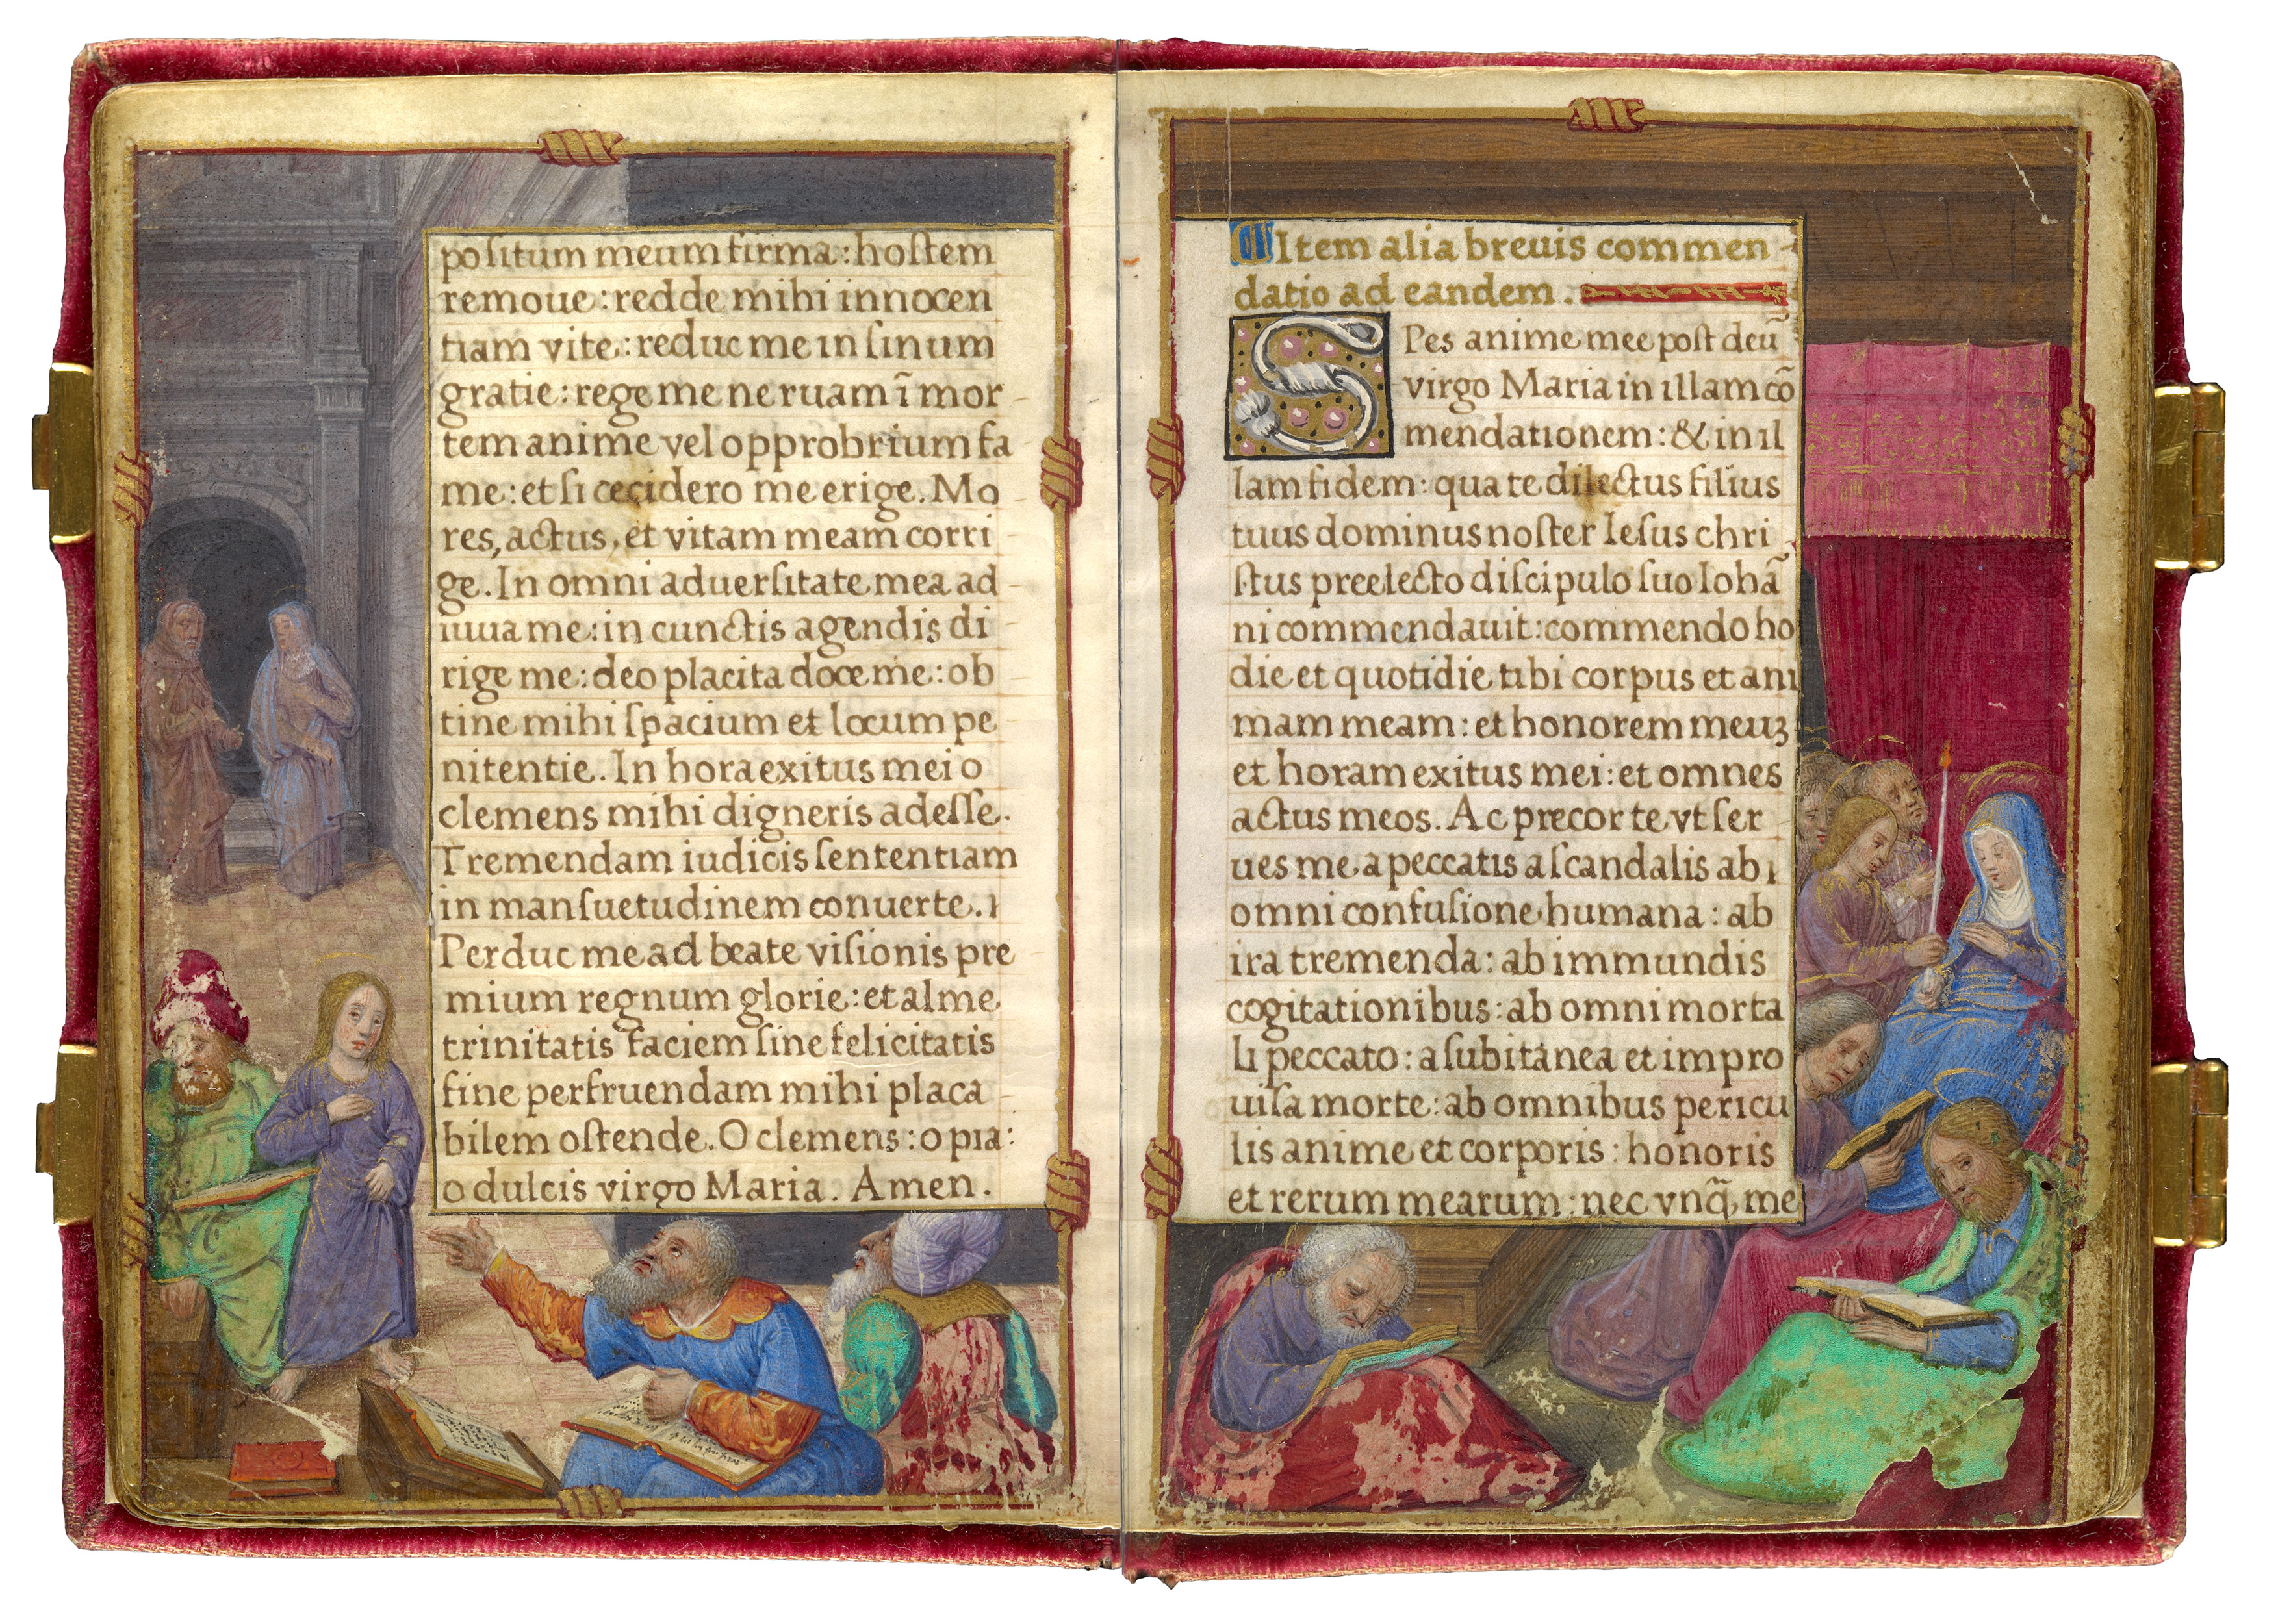 positum meum firma: hostem
remoue: redde mihi innocen
tiam vite: reduc me in sinum
gratie: rege me ne ruam ī mor
tem anime vel opprobrium fa
me: et si cecidero me erige. Mo
res, actus, et vitam meam corri
ge. In omni aduersitate mea ad
iuua me: in cunctis agendis di
rige me: deo placita doce me: ob
tine mihi spacium et locum pe
nitentie. In hora exitus mei o
clemens mihi digneris adesse.
Tremendam iudicis sententiam
in mansuetudinem conuerte.
Perduc me ad beate visionis pre
mium regnum glorie: et alme
trinitatis faciem sine felicitatis
fine perfruendam mihi placa
bilem ostende. O clemens: o pia:
o dulcis virgo Maria. Amen.
Item alia breuis commen
datio ad eandem.
SPes anime mee post deū
virgo Maria in illam cō
mendationem: & in il
lam fidem: qua te dilectus filius
tuus dominus noster Iesus chri
stus preelecto discipulo suo Iohā
ni commendauit: commendo ho
die et quotidie tibi corpus et ani
mam meam: et honorem meuꝫ
et horam exitus mei: et omnes
actus meos. Ac precor te vt ser
ues me a peccatis a scandalis ab
omni confusione humana: ab
ira tremenda: ab immundis
cogitationibus: ab omni morta
li peccato: a subitanea et impro
uisa morte: ab omnibus pericu
lis anime et corporis: honoris
et rerum mearum: nec vnq̄ me